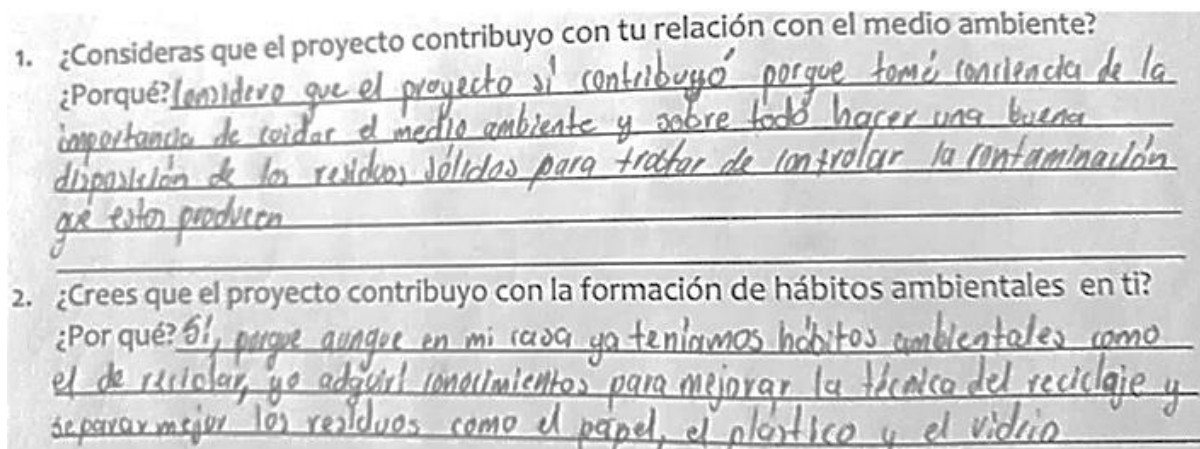 1. ¿Consideras que el proyecto contribuyo con tu relación con el medio ambiente?
¿Porqué? Considero que el proyecto sí contribuyó porque tomé conciencia de la
importancia de cuidar el medio ambiente y sobre todo hacer una buena
disposición de los residuos sólidos para tratar de controlar la contaminación
que estos producen
2. ¿Crees que el proyecto contribuyo con la formación de hábitos ambientales en ti?
¿Por qué? Sí, porque aunque en mi casa ya teníamos hábitos ambientales como
el de reciclar, yo adquirí conocimientos para mejorar la técnica del reciclaje y
separar mejor los residuos como el papel, el plástico y el vidrio